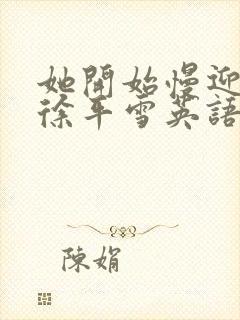 她開始慢迎
徐平雪英語
陳娟